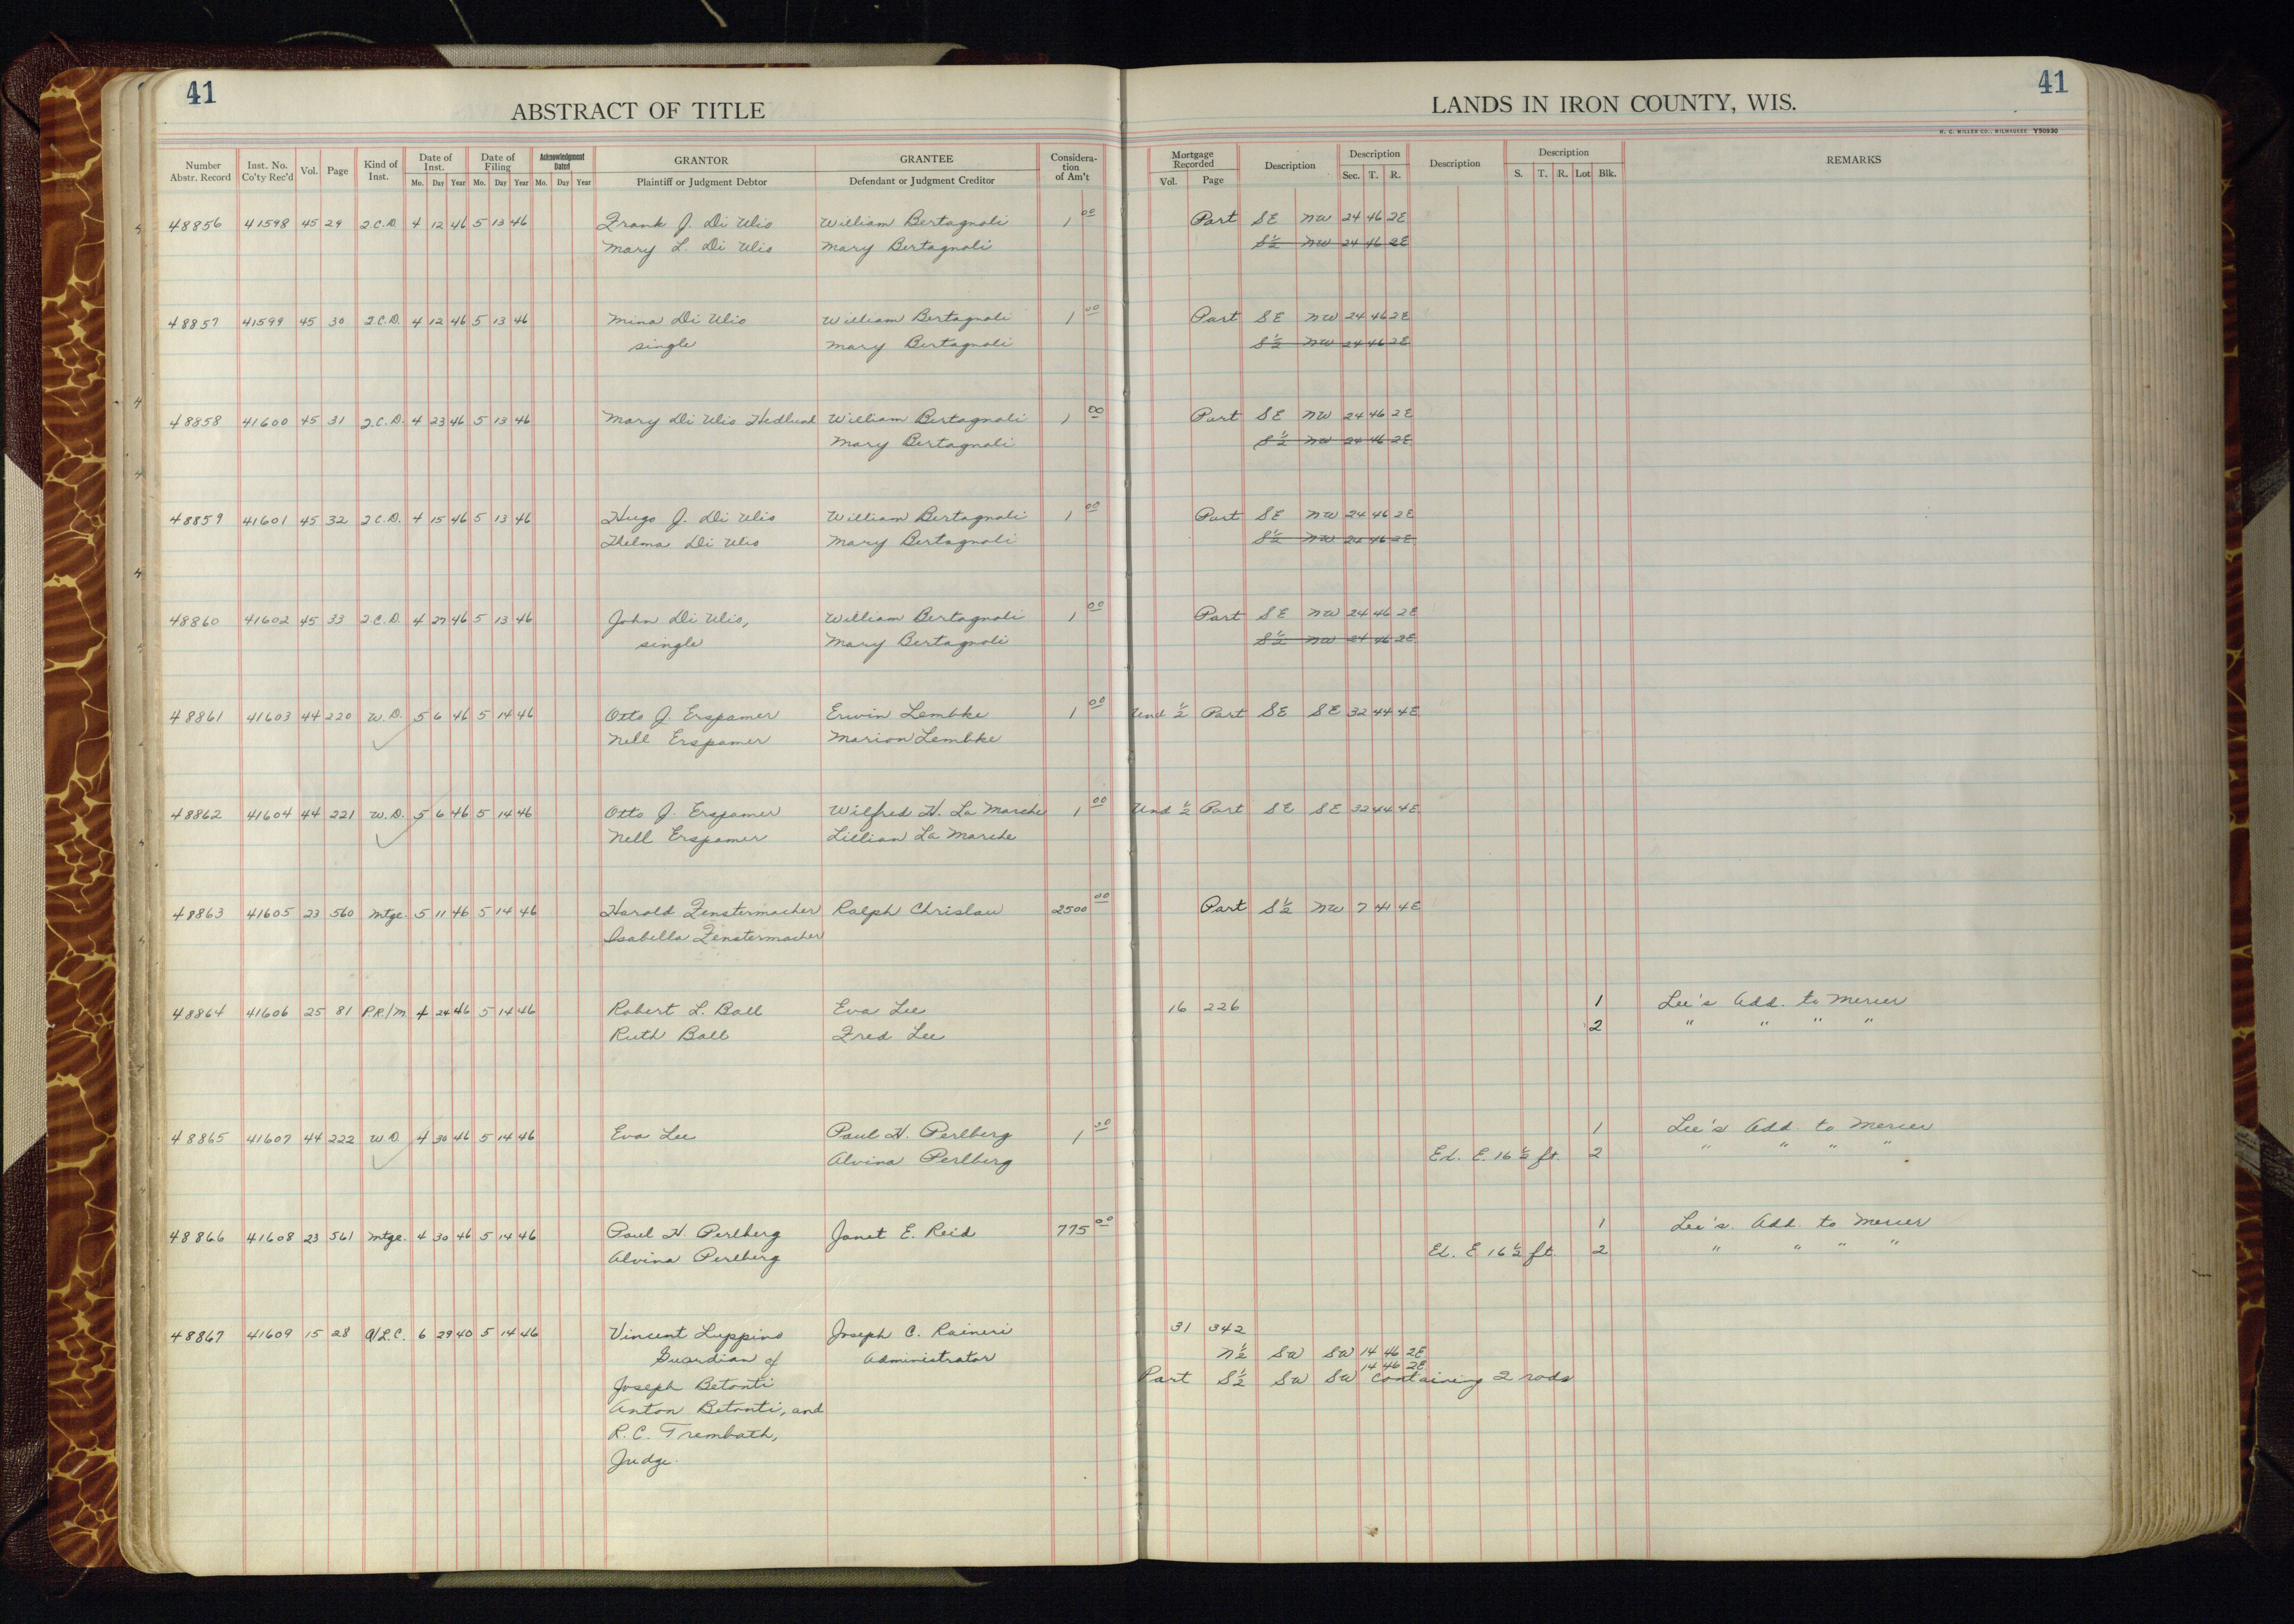 41
41
ABSTRACT OF TITLE
LANDS IN IRON COUNTY, WIS.
H. C. MILLER CO., MILWAUKEE Y50930
Number Abstr. Record Inst. No. Co'ty Rec'd Vol. Page Kind of Inst. Date of Inst. Mo. Day Year Date of Filing Mo. Day Year Acknowledgment Dated Mo. Day Year GRANTOR Plaintiff or Judgment Debtor GRANTEE Defendant or Judgment Creditor Considera-tion of Am't Mortgage Recorded Vol. Page Description Description Sec. T. R. Description Description S. T. R. Lot Blk. REMARKS
48856 41598 45 29 2.C.D. 4 12 46 5 13 46 Frank J. Di Ulio William Bertagnoli 1 00 Part SE NW 24 46 2E
Mary L. Di Ulio Mary Bertagnoli S½ NW 24 46 2E
48857 41599 45 30 2.C.D. 4 12 46 5 13 46 Mina Di Ulio William Bertagnoli 1 00 Part SE NW 24 46 2E
single Mary Bertagnoli S½ NW 24 46 2E
48858 41600 45 31 2.C.D. 4 23 46 5 13 46 Mary Di Ulio Hedlund William Bertagnoli 1 00 Part SE NW 24 46 2E
Mary Bertagnoli S½ NW 24 46 2E
48859 41601 45 32 2C.D. 4 15 46 5 13 46 Hugo J. Di Ulio William Bertagnoli 1 00 Part SE NW 24 46 2E
Thelma Di Ulio Mary Bertagnoli S½ NW 24 46 2E
48860 41602 45 33 2C.D. 4 27 46 5 13 46 John Di Ulio, William Bertagnoli 1 00 Part SE NW 24 46 2E
single Mary Bertagnoli S½ NW 24 46 2E
48861 41603 44 220 W.D. 5 6 46 5 14 46 Otto J. Erspamer Erwin Lembke 1 00 Und ½ Part SE SE 32 44 4E
Nell Erspamer Marion Lembke
48862 41604 44 221 W.D. 5 6 46 5 14 46 Otto J. Erspamer Wilfred H. La Marche 1 00 Und ½ Part SE SE 32 44 4E
Nell Erspamer Lillian La Marche
48863 41605 23 560 Mtge. 5 11 46 5 14 46 Harold Fenstermacher Ralph Chrislaw 2500 00 Part S½ NW 7 41 4E
Isabella Fenstermacher
48864 41606 25 81 P.R./M. 4 24 46 5 14 46 Robert L. Ball Eva Lee 16 226 1 Lee's Add. to Mercer
Ruth Ball Fred Lee 2 " " " "
48865 41607 44 222 W.D. 4 30 46 5 14 46 Eva Lee Paul H. Perlberg 1 00 1 Lee's Add. to Mercer
Alvina Perlberg Ex. E. 16½ ft. 2 " " " "
48866 41608 23 561 Mtge. 4 30 46 5 14 46 Paul H. Perlberg Janet E. Reid 775 00 1 Lee's Add. to Mercer
Alvina Perlberg Ex. E 16½ ft. 2 " " " "
48867 41609 15 28 A/L.C. 6 29 40 5 14 46 Vincent Luppino Joseph C. Raineri 31 342
Guardian of Administrator N½ SW SW 14 46 2E
14 46 2E
Joseph Betonti Part S½ SW SW containing 2 rods
Anton Betonti, and
R.C. Trembath,
Judge.